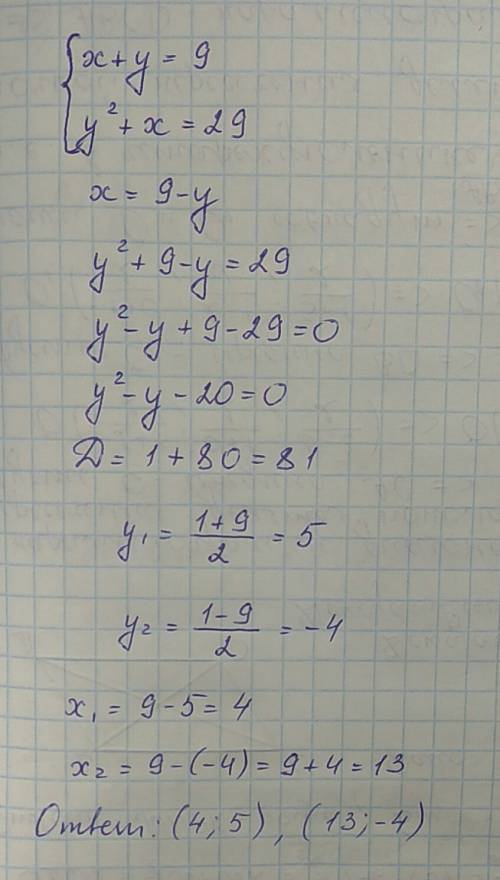 x + y = 9
y² + x = 29
x = 9 - y
y² + 9 - y = 29
y² - y + 9 - 29 = 0
y² - y - 20 = 0
D = 1 + 80 = 81
y₁ = (1+9)/2 = 5
y₂ = (1-9)/2 = -4
x₁ = 9 - 5 = 4
x₂ = 9 - (-4) = 9 + 4 = 13
Ответ: (4; 5), (13; -4)